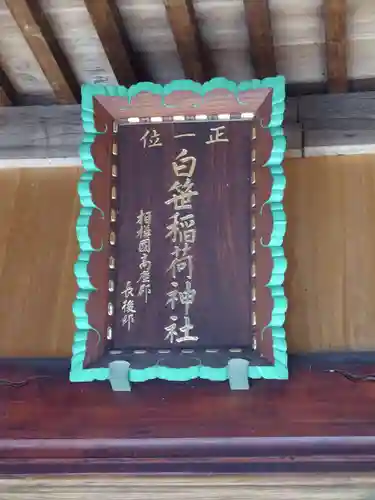 正一位
白笹稲荷神社
相模國高座郡
長後郷